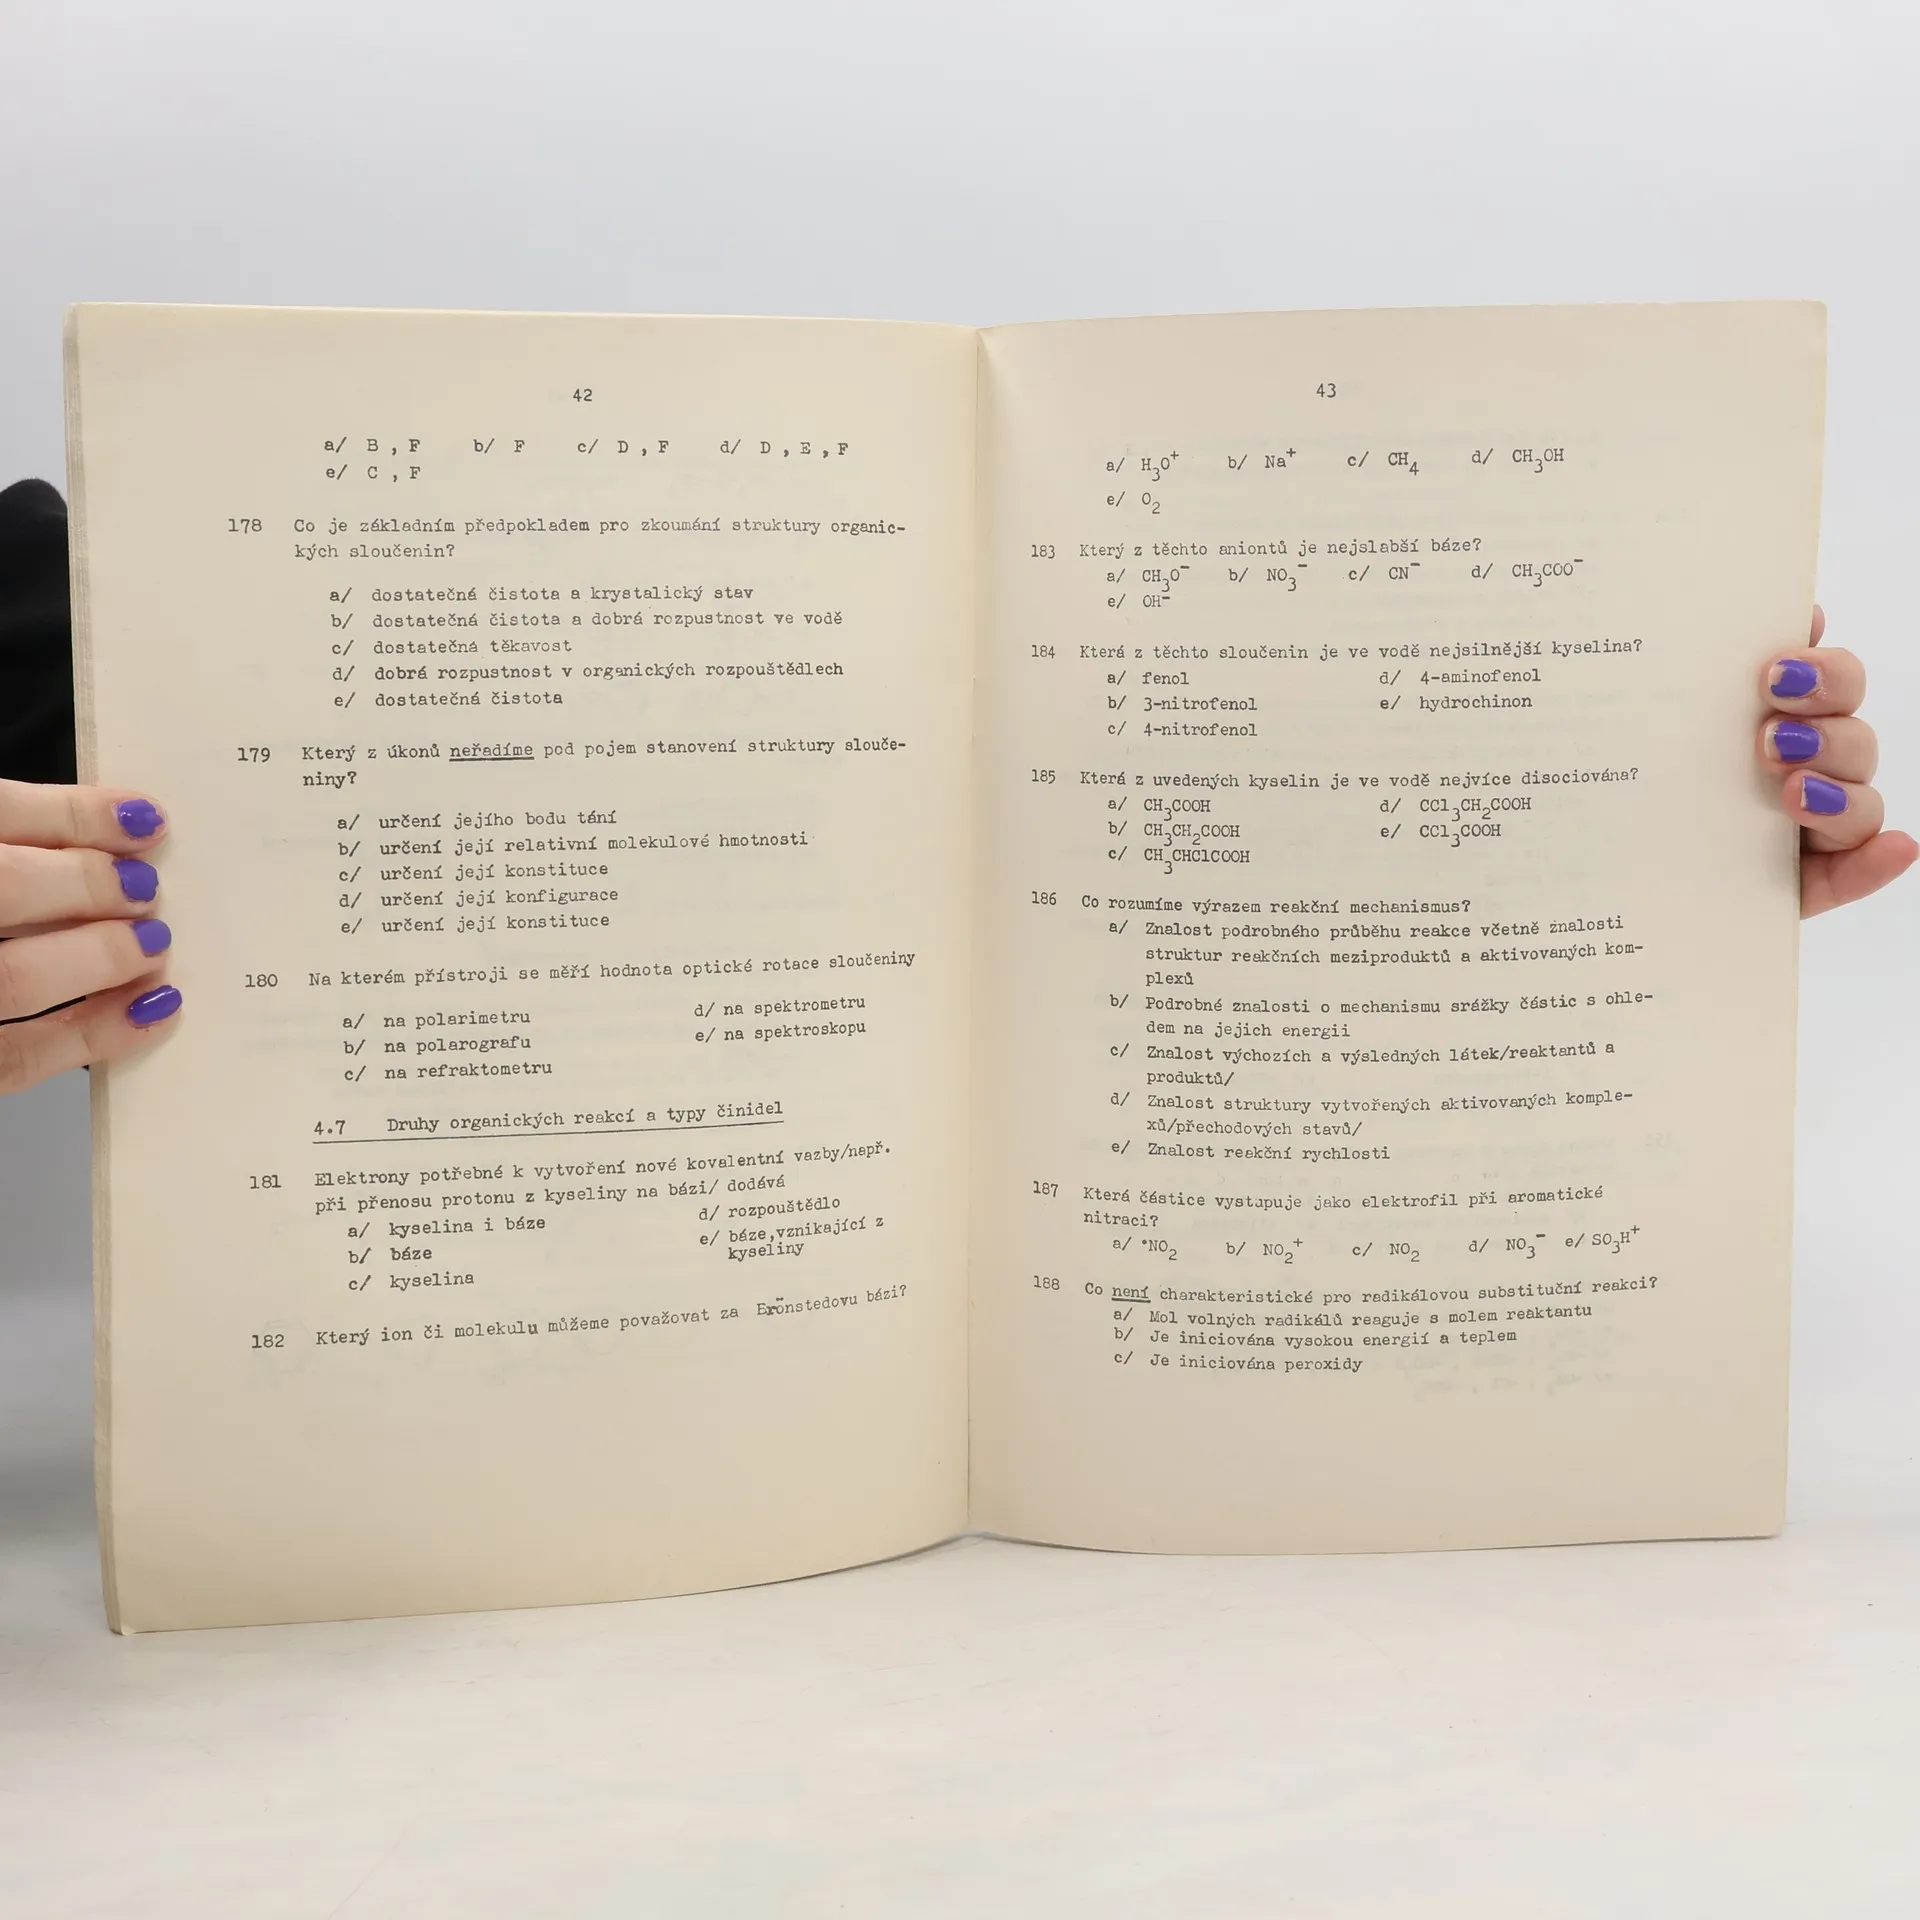 42
a/ B , F b/ F c/ D , F d/ D , E , F
e/ C , F
178 Co je základním předpokladem pro zkoumání struktury organic-
kých sloučenin?
a/ dostatečná čistota a krystalický stav
b/ dostatečná čistota a dobrá rozpustnost ve vodě
c/ dostatečná těkavost
d/ dobrá rozpustnost v organických rozpouštědlech
e/ dostatečná čistota
179 Který z úkonů neřadíme pod pojem stanovení struktury slouče-
niny?
a/ určení jejího bodu tání
b/ určení její relativní molekulové hmotnosti
c/ určení její konstituce
d/ určení její konfigurace
e/ určení její konstituce
180 Na kterém přístroji se měří hodnota optické rotace sloučeniny
a/ na polarimetru d/ na spektrometru
b/ na polarografu e/ na spektroskopu
c/ na refraktometru
4.7 Druhy organických reakcí a typy činidel
181 Elektrony potřebné k vytvoření nové kovalentní vazby/např.
při přenosu protonu z kyseliny na bázi/ dodává
a/ kyselina i báze d/ rozpouštědlo
b/ báze e/ báze,vznikající z
kyseliny
c/ kyselina
182 Který ion či molekulu můžeme považovat za Brönstedovu bázi?
43
a/ H₃O⁺ b/ Na⁺ c/ CH₄ d/ CH₃OH
e/ O₂
183 Který z těchto aniontů je nejslabší báze?
a/ CH₃O⁻ b/ NO₃⁻ c/ CN⁻ d/ CH₃COO⁻
e/ OH⁻
184 Která z těchto sloučenin je ve vodě nejsilnější kyselina?
a/ fenol d/ 4-aminofenol
b/ 3-nitrofenol e/ hydrochinon
c/ 4-nitrofenol
185 Která z uvedených kyselin je ve vodě nejvíce disociována?
a/ CH₃COOH d/ CCl₃CH₂COOH
b/ CH₃CH₂COOH e/ CCl₃COOH
c/ CH₃CHClCOOH
186 Co rozumíme výrazem reakční mechanismus?
a/ Znalost podrobného průběhu reakce včetně znalosti
struktur reakčních meziproduktů a aktivovaných kom-
plexů
b/ Podrobné znalosti o mechanismu srážky částic s ohle-
dem na jejich energii
c/ Znalost výchozích a výsledných látek/reaktantů a
produktů/
d/ Znalost struktury vytvořených aktivovaných komple-
xů/přechodových stavů/
e/ Znalost reakční rychlosti
187 Která částice vystupuje jako elektrofil při aromatické
nitraci?
a/ •NO₂ b/ NO₂⁺ c/ NO₂ d/ NO₃⁻ e/ SO₃H⁺
188 Co není charakteristické pro radikálovou substituční reakci?
a/ Mol volných radikálů reaguje s molem reaktantu
b/ Je iniciována vysokou energií a teplem
c/ Je iniciována peroxidy